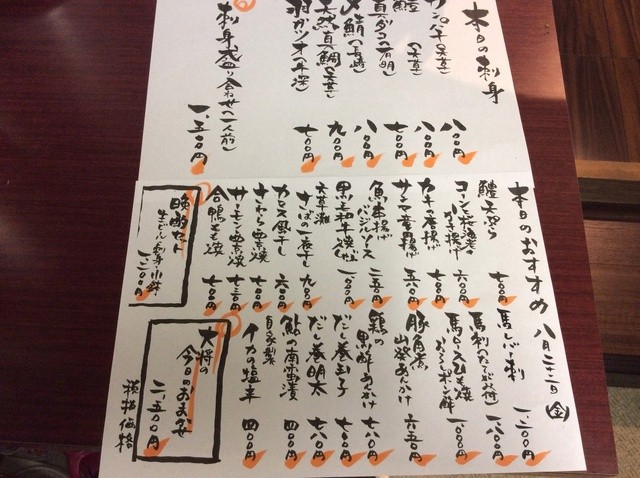 本日の刺身
八〇〇円
鱧 (天草)
八〇〇円
真ダコ (有明)
七〇〇円
〆鯖 (長崎)
八〇〇円
天然真鯛 (天草)
九〇〇円
羽ガツオ (牛深)
七〇〇円
刺身盛り合わせ (一人前)
一、五〇〇円
本日のおすすめ 八月二十二日 (金)
鱧天ぷら
七〇〇円
六〇〇円
カキの唐揚げ
七〇〇円
サンマ竜田揚げ
五八〇円
魚串揚げ
バジルソース
二五〇円
黒毛和牛
一、〇〇〇円
天草灘
さばの一夜干し
九〇〇円
カマス風干し
六〇〇円
さわら西京焼
七〇〇円
サーモン西京焼
七五〇円
合鴨もも焼
七〇〇円
晩酌セット
生ビール 刺身 小鉢
一、二〇〇円
馬レバー刺
一、二〇〇円
馬刺 (たてがみ付)
一、八〇〇円
馬ロースひも焼
おろしポン酢
一、〇〇〇円
豚角煮
山菜あんかけ
六五〇円
鶏の
黒酢あんかけ
六八〇円
だし巻玉子
七〇〇円
だし巻明太
七八〇円
鮎の南蛮漬
四〇〇円
自家製
イカの塩辛
四〇〇円
大将の
今日のおまかせ
二、五〇〇円
税抜価格